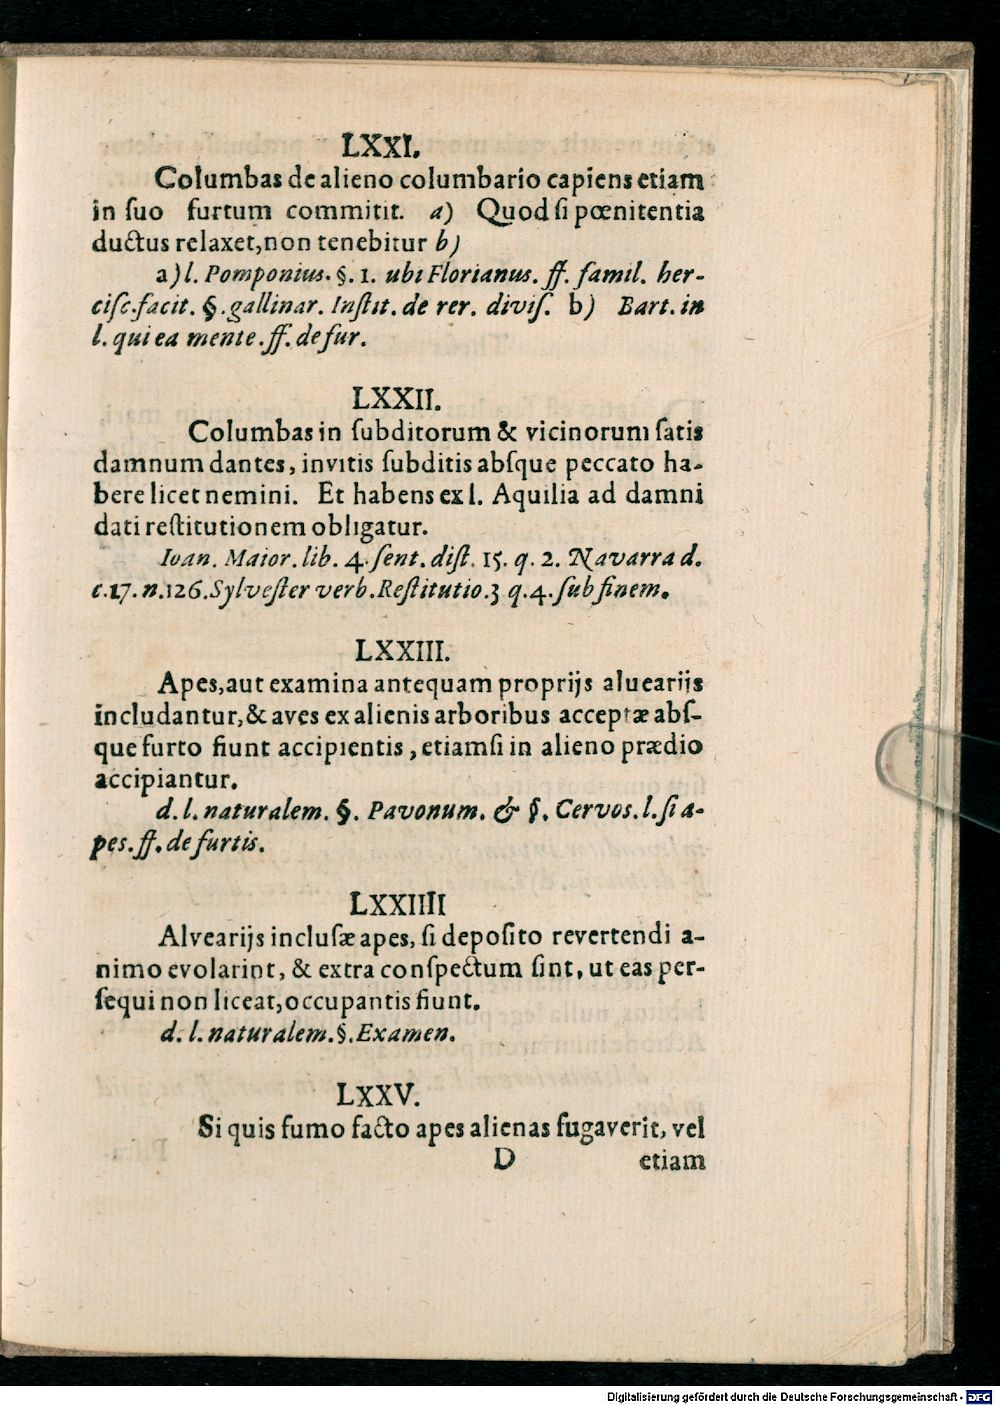 LXXI.
Columbas de alieno columbario capiens etiam
in ſuo furtum commitit. a) Quod ſi pœnitentia
ductus relaxet, non tenebitur b)
a) l. Pomponius. §. 1. ubi Florianus. ff. famil. her-
ciſc. facit. §. gallinar. Inſtit. de rer. diviſ. b) Bart. in
l. qui ea mente. ff. de fur.
LXXII.
Columbas in ſubditorum & vicinorum ſatis
damnum dantes, invitis ſubditis abſque peccato ha-
bere licet nemini. Et habens ex l. Aquilia ad damni
dati reſtitutionem obligatur.
Ioan. Maior. lib. 4. ſent. diſt. 15. q. 2. Navarra d.
c. 17. n. 126. Sylveſter verb. Reſtitutio. 3 q. 4. ſub finem.
LXXIII.
Apes, aut examina antequam proprijs aluearijs
includantur, & aves ex alienis arboribus acceptæ abſ-
que furto fiunt accipientis, etiamſi in alieno prædio
accipiantur.
d. l. naturalem. §. Pavonum. & §. Cervos. l. ſi a-
pes. ff. de furtis.
LXXIIII
Alvearijs incluſæ apes, ſi depoſito revertendi a-
nimo evolarint, & extra conſpectum ſint, ut eas per-
ſequi non liceat, occupantis fiunt.
d. l. naturalem. §. Examen.
LXXV.
Si quis fumo facto apes alienas fugaverit, vel
D etiam
Digitalisierung gefördert durch die Deutsche Forschungsgemeinschaft - DFG